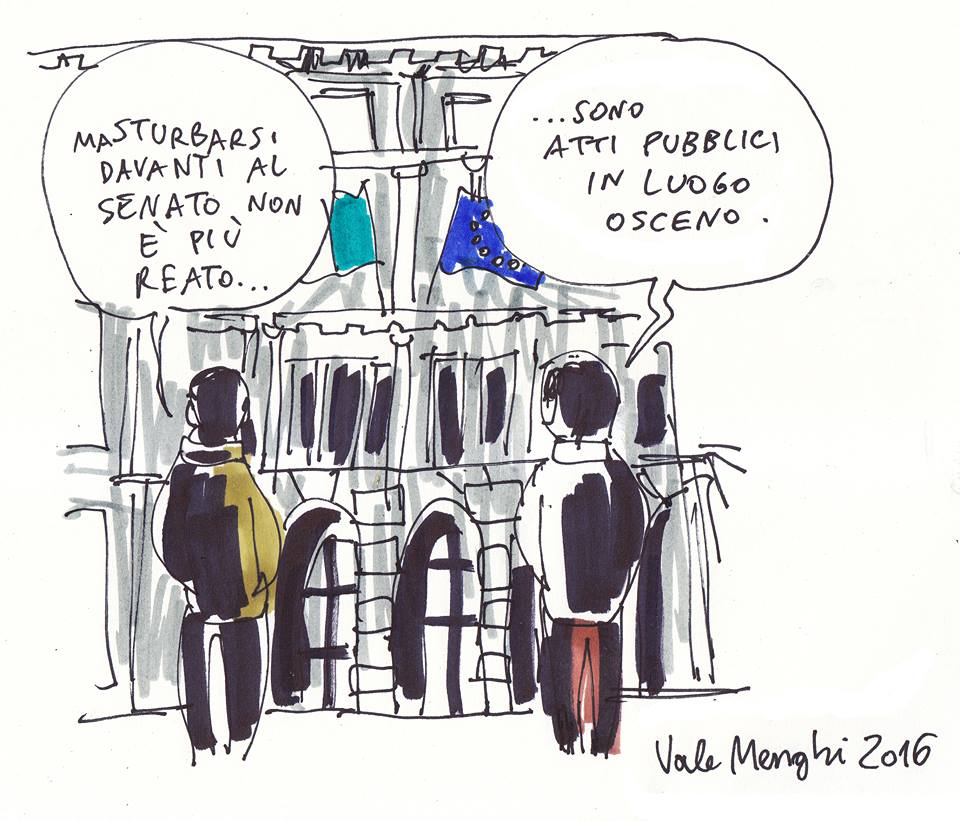 MASTURBARSI
DAVANTI AL
SENATO NON
È PIÙ
REATO...
...SONO
ATTI PUBBLICI
IN LUOGO
OSCENO.
Vale Menghi 2016